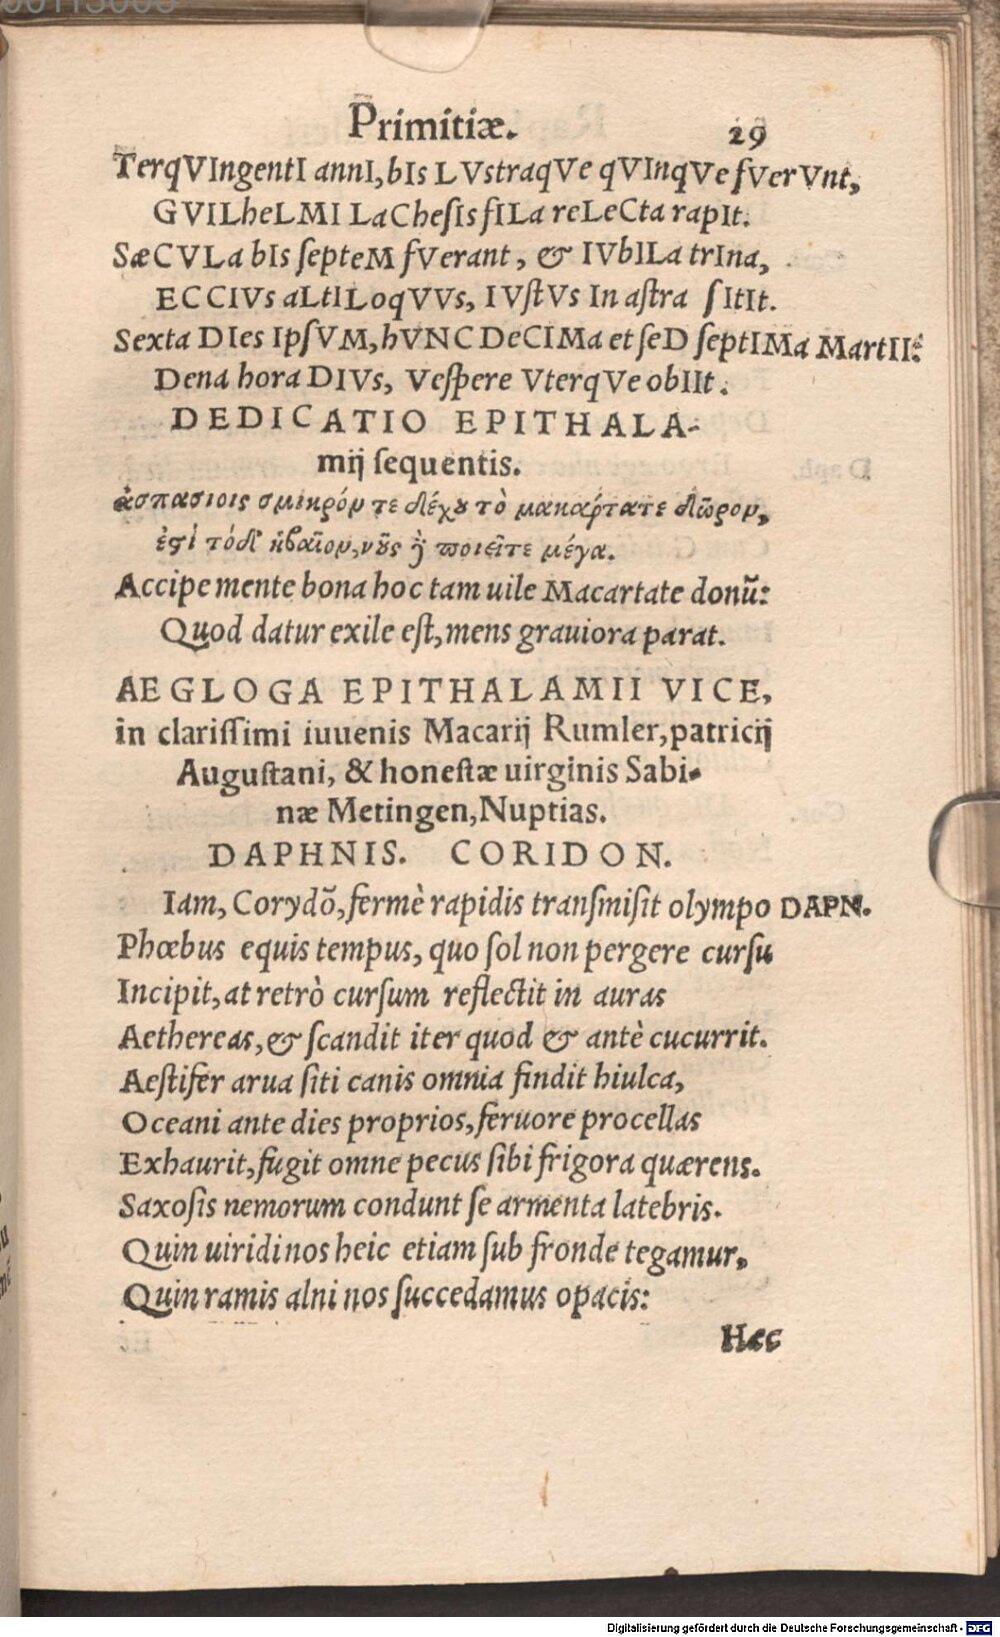 Primitiæ. 29
TerqVIngentI annI, bIs LVstraqVe qVInqVe fVerVnt,
GVILheLMI LaChesIs fILa reLeCta rapIt.
SæCVLa bIs septeM fVerant, & IVbILa trIna,
ECCIVs aLtILoqVVs, IVstVs In astra sItIt.
Sexta DIes IpsVM, hVNC DeCIMa et seD septIMa MartII:
Dena hora DIVs, Vespere VterqVe obIIt.
DEDICATIO EPITHALA-
mij sequentis.
ἀσπασιοις σμικρόν τε δέχου τὸ μακάρτατε δῶρον,
ἐστὶ τόδ' ἠβαῖον, νοῦς ἢ ποιεῖτε μέγα.
Accipe mente bona hoc tam uile Macartate donũ:
Quod datur exile est, mens grauiora parat.
AEGLOGA EPITHALAMII VICE,
in clarissimi iuuenis Macarij Rumler, patricij
Augustani, & honestæ uirginis Sabi-
næ Metingen, Nuptias.
DAPHNIS. CORIDON.
Iam, Corydõ, fermè rapidis transmisit olympo DAPN.
Phœbus equis tempus, quo sol non pergere cursu
Incipit, at retrò cursum reflectit in auras
Aethereas, & scandit iter quod & antè cucurrit.
Aestifer arua siti canis omnia findit hiulca,
Oceani ante dies proprios, feruore procellas
Exhaurit, fugit omne pecus sibi frigora quærens.
Saxosis nemorum condunt se armenta latebris.
Quin uiridi nos heic etiam sub fronde tegamur,
Quin ramis alni nos succedamus opacis:
Hæc
Digitalisierung gefördert durch die Deutsche Forschungsgemeinschaft - DFG